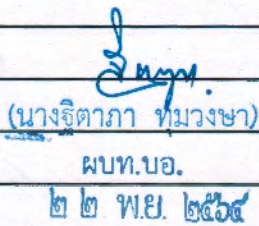 (นางธิตาภา ทุมวงษา)
ผบท.บอ.
๒๒ พ.ย. ๒๕๖๔